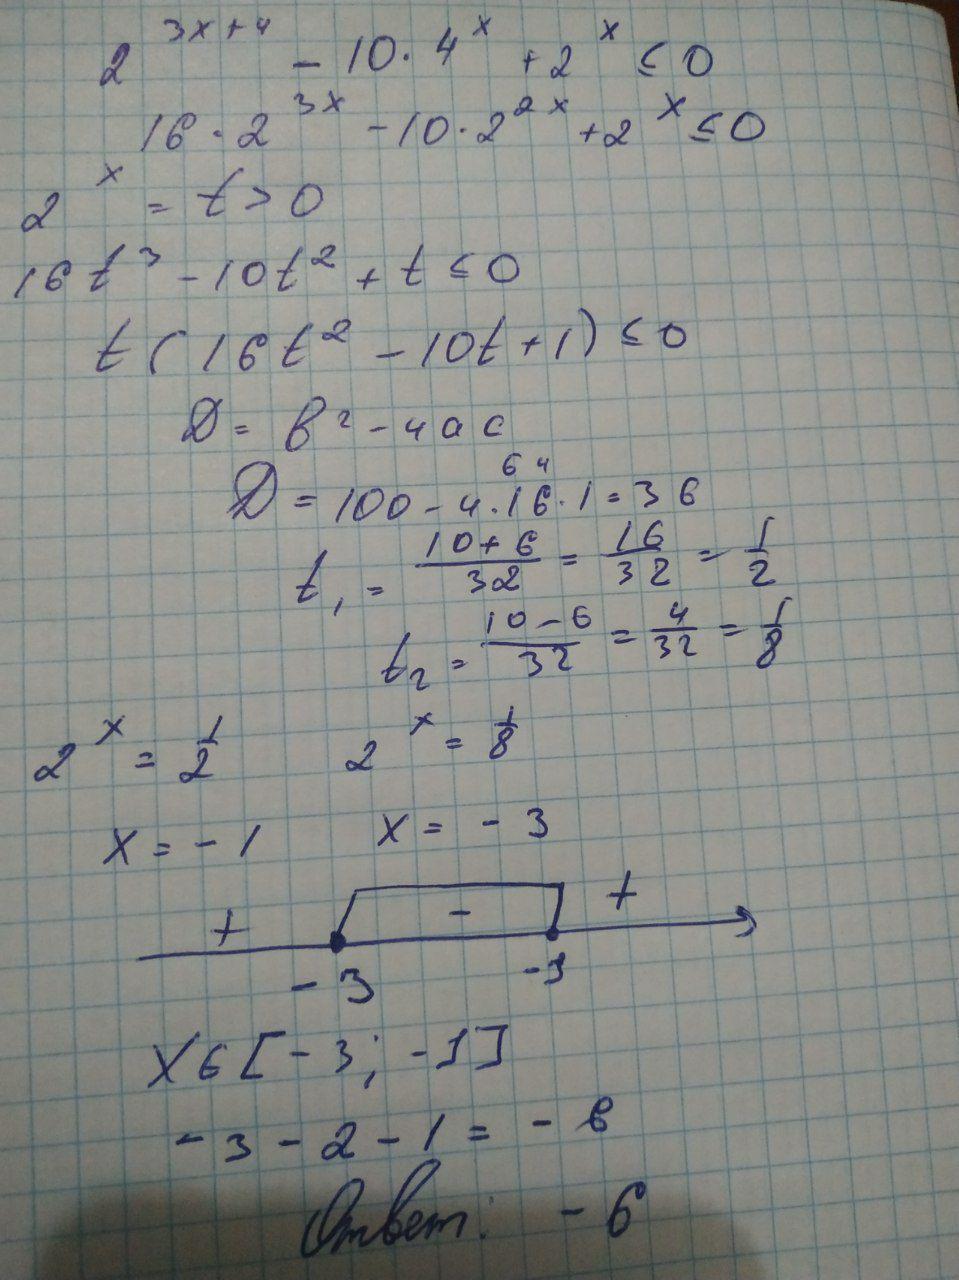 2^{3x+4} - 10·4^x + 2^x ≤ 0
16·2^{3x} - 10·2^{2x} + 2^x ≤ 0
2^x = t > 0
16t^3 - 10t^2 + t ≤ 0
t(16t^2 - 10t + 1) ≤ 0
D = b^2 - 4ac
64
D = 100 - 4·16·1 = 36
t_1 = \frac{10+6}{32} = \frac{16}{32} = \frac{1}{2}
t_2 = \frac{10-6}{32} = \frac{4}{32} = \frac{1}{8}
2^x = \frac{1}{2} 2^x = \frac{1}{8}
x = -1 x = -3
+ - +
-3 -1
x∈[-3; -1]
-3 - 2 - 1 = -6
Ответ: -6